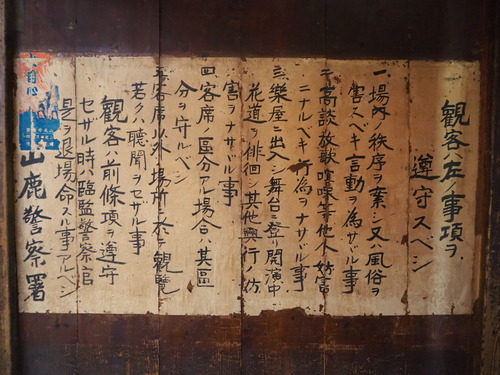 観客ハ左ノ事項ヲ
遵守スベシ
一、場内ノ秩序ヲ紊シ又ハ風俗ヲ
害スベキ言動ヲ為サヾル事
二、高談放歌喧噪等他人ノ妨害
ニナルベキ行為ヲナサヾル事
三、楽屋ニ出入シ舞台ニ登リ開演中
花道ヲ徘徊シ其他興行ノ妨
害ヲナサヾル事
四、客席ノ区分アル場合ハ其區
分ヲ守ルベシ
五、客席以外ノ場所ニ於テ観覧
若クハ聴聞ヲセザル事
観客ハ前條項ヲ遵守
セザル時ハ臨監警察官
是ヲ退場命スル事アルベシ
山鹿警察署